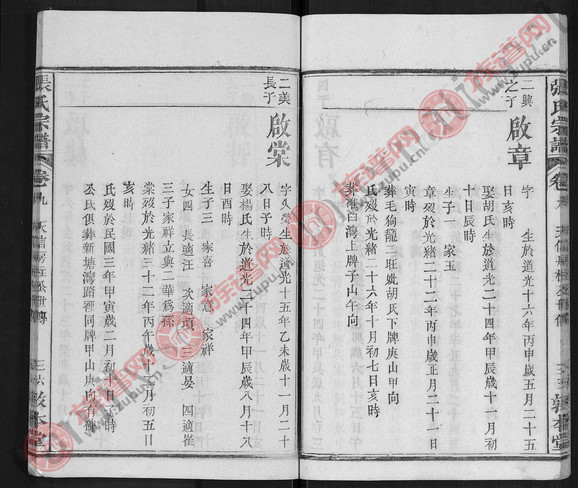 張氏宗譜
卷九
敦本堂
二興
之子
啟章
字 生於道光十六年丙申歲五月二十五
日亥時
娶胡氏生於道光二十四年甲辰歲十一月初
十日辰時
生子一 家玉
章歿於光緒二十二年丙申歲正月二十一日
寅時
葬毛狗籠二旺妣胡氏下牌庚山甲向
氏歿於光緒二十六年十月初七日亥時
葬 白灣上牌子山午向
二美
長子
啟棠
字久榮生於道光十五年乙未歲十一月二十
八日子時
娶楊氏生於道光二十四年甲辰歲八月十八
日酉時
生子三 家喜 家 家祥
女四 長適汪 次適項 三適晏 四適崔
三子家祥立與二華為孫
棠歿於光緒三十二年丙午歲十一月初五日
亥時
氏歿於民國三年甲寅歲二月初十日亥時
公氏俱葬新塘灣路裡同牌甲山庚向有碑
張氏宗譜
卷九
三六
敦本堂
族譜網
www.zupu.cn